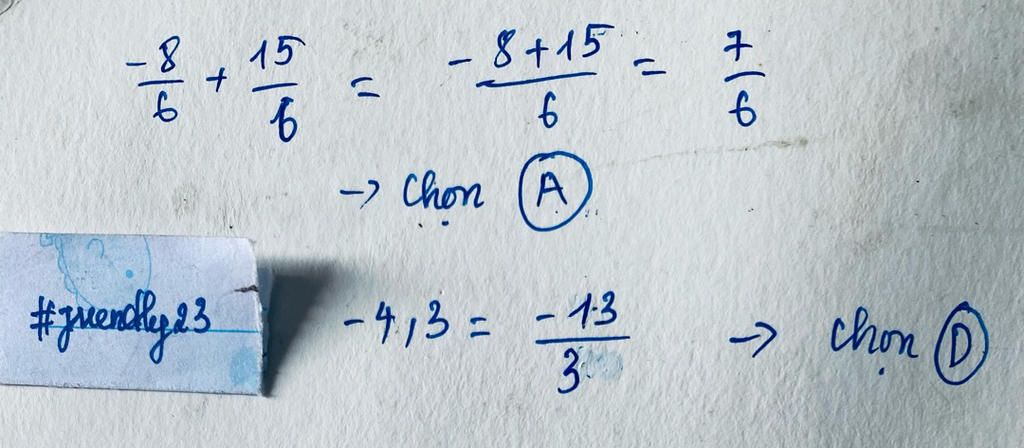 -8/6 + 15/6 = -8+15/6 = 7/6
→ Chọn A
#friendly23
-4,3 = -13/3 → Chọn D